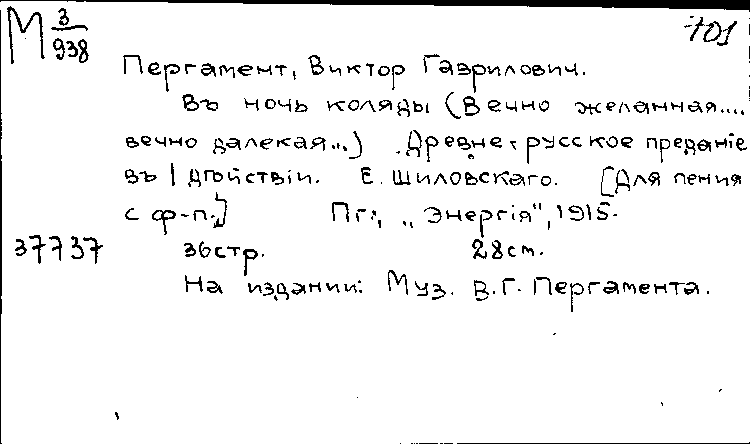 М 3/938
701
Пергамент, Виктор Гаврилович.
Въ ночь коляды (Вечно желанная....
вечно далекая...) Древне-русское преданіе
въ 1 дѣйствіи. Е. Шиловскаго. [Для пения
с ф-п.] Пг., „Энергія", 1915.
37737 36стр. 28см.
На издании: Муз. В.Г. Пергамента.